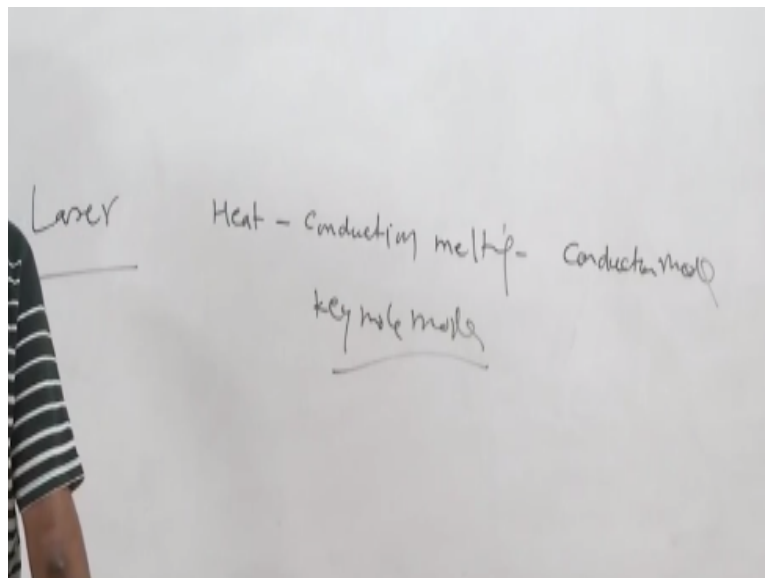 Laser Heat - Conduction melting - Conduction mode
keyhole mode